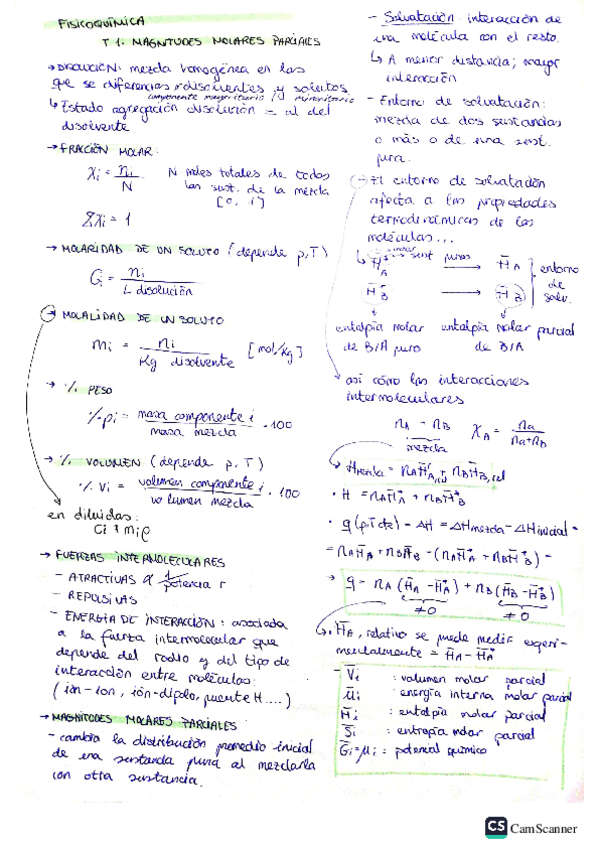 FISICOQUÍMICA
T1. MAGNITUDES MOLARES PARCIALES
→ DISOLUCIÓN: mezcla homogénea en las
que se diferencian disolventes y solutos
componente mayoritario / minoritario
↳ Estado agregación disolución = al del
disolvente
→ FRACCIÓN MOLAR:
Xi = ni / N
N moles totales de todas
las sust. de la mezcla
[0, 1]
ΣXi = 1
→ MOLARIDAD DE UN SOLUTO (depende p,T)
Ci = ni / L disolución
→ MOLALIDAD DE UN SOLUTO
mi = ni / Kg disolvente [mol/Kg]
→ % PESO
%pi = masa componente i / masa mezcla · 100
→ % VOLUMEN (depende p, T)
% Vi = volumen componente i / volumen mezcla · 100
en diluidas:
Ci ≈ miρ
→ FUERZAS INTERMOLECULARES
- ATRACTIVAS α 1 / potencia r
- REPULSIVAS
- ENERGÍA DE INTERACCIÓN: asociada
a la fuerza intermolecular que
depende del radio y del tipo de
interacción entre moléculas:
(ión-ion, ión-dipolo, puente H....)
→ MAGNITUDES MOLARES PARCIALES
- cambia la distribución promedio inicial
de una sustancia pura al mezclarla
con otra sustancia.
- Solvatación: interacción de
una molécula con el resto.
↳ A menor distancia; mayor
interacción
- Entorno de solvatación:
mezcla de dos sustancias
o más o de una sust.
pura.
- El entorno de solvatación
afecta a las propiedades
termodinámicas de las
moléculas...
↳ H̄*A sust puras → H̄A
H̄*B → H̄B
entorno
de
solv.
entalpía molar entalpía molar parcial
de B/A puro de B/A
así cómo las interacciones
intermoleculares
nA - nB
mezcla
XA = na / na+nB
H = nAH̄*A + nBH̄*B
q (p,T ctes) = ΔH = ΔHmezcla - ΔHinicial =
= nAH̄A + nBH̄B - (nAH̄*A + nBH̄*B) =
→ q = nA (H̄A - H̄*A) + nB (H̄B - H̄*B)
≠0 ≠0
H̄A, relativo se puede medir experi-
mentalmente = H̄A - H̄*A
- V̄i : volumen molar parcial
Ūi : energía interna molar parcial
H̄i : entalpía molar parcial
S̄i : entropía molar parcial
Ḡi = μi : potencial químico
CS CamScanner